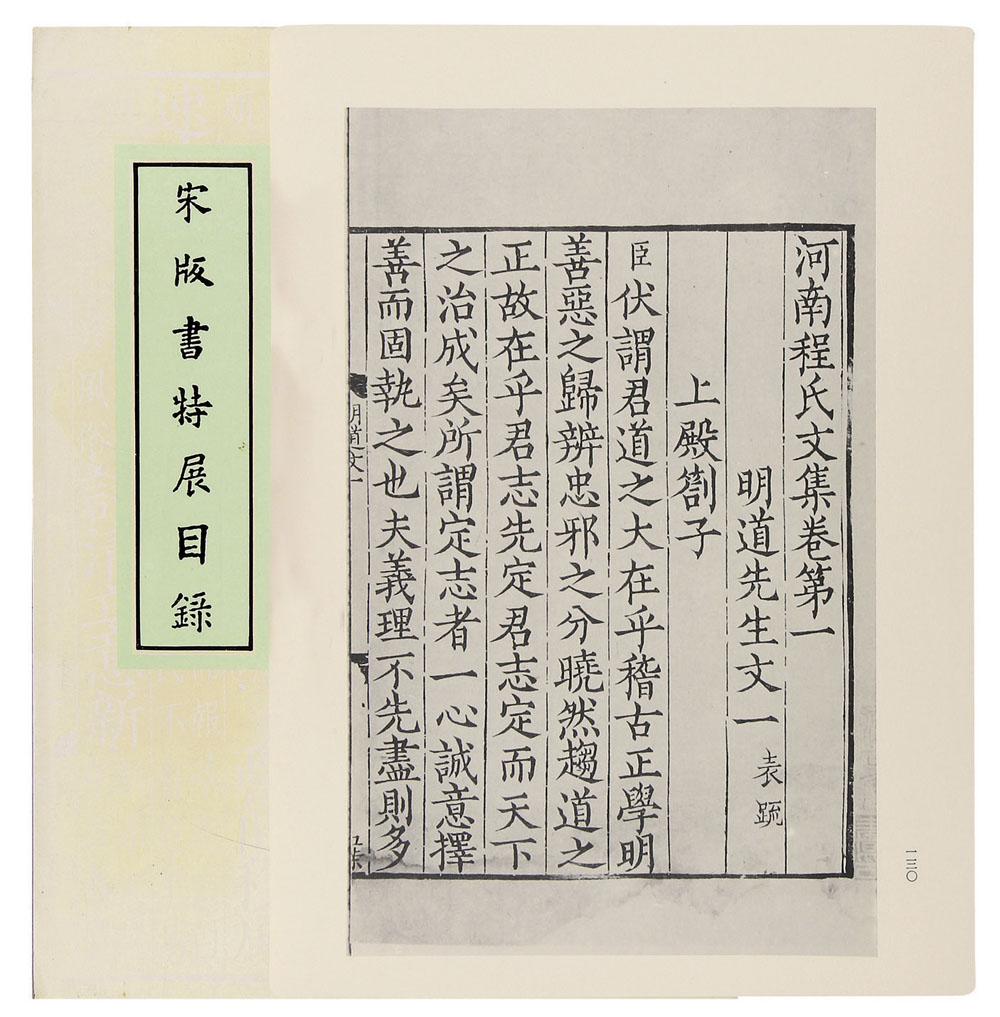 宋版書特展目錄
河南程氏文集卷第一
明道先生文一 表疏
上殿劄子
臣伏謂君道之大在乎稽古正學明
善惡之歸辨忠邪之分曉然趨道之
正故在乎君志先定君志定而天下
之治成矣所謂定志者一心誠意擇
善而固執之也夫義理不先盡則多
明道文一
一三〇